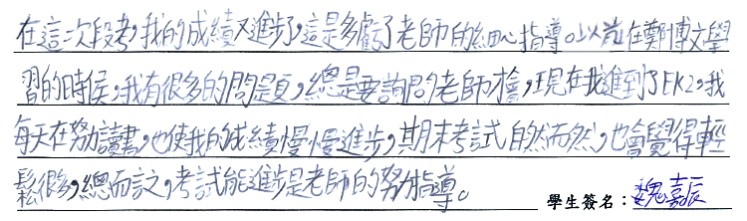 在這次段考，我的成績又進步了，這是多虧了老師的細心指導。以前在鄭博文學
習的時候，我有很多的問題，總是要詢問老師才會，現在我進到了EK2，我
每天在努力讀書，也使我的成績慢慢進步，期末考試自然而然，也會覺得輕
鬆很多，總而言之，考試能進步是老師的努力指導。
學生簽名：魏嘉辰